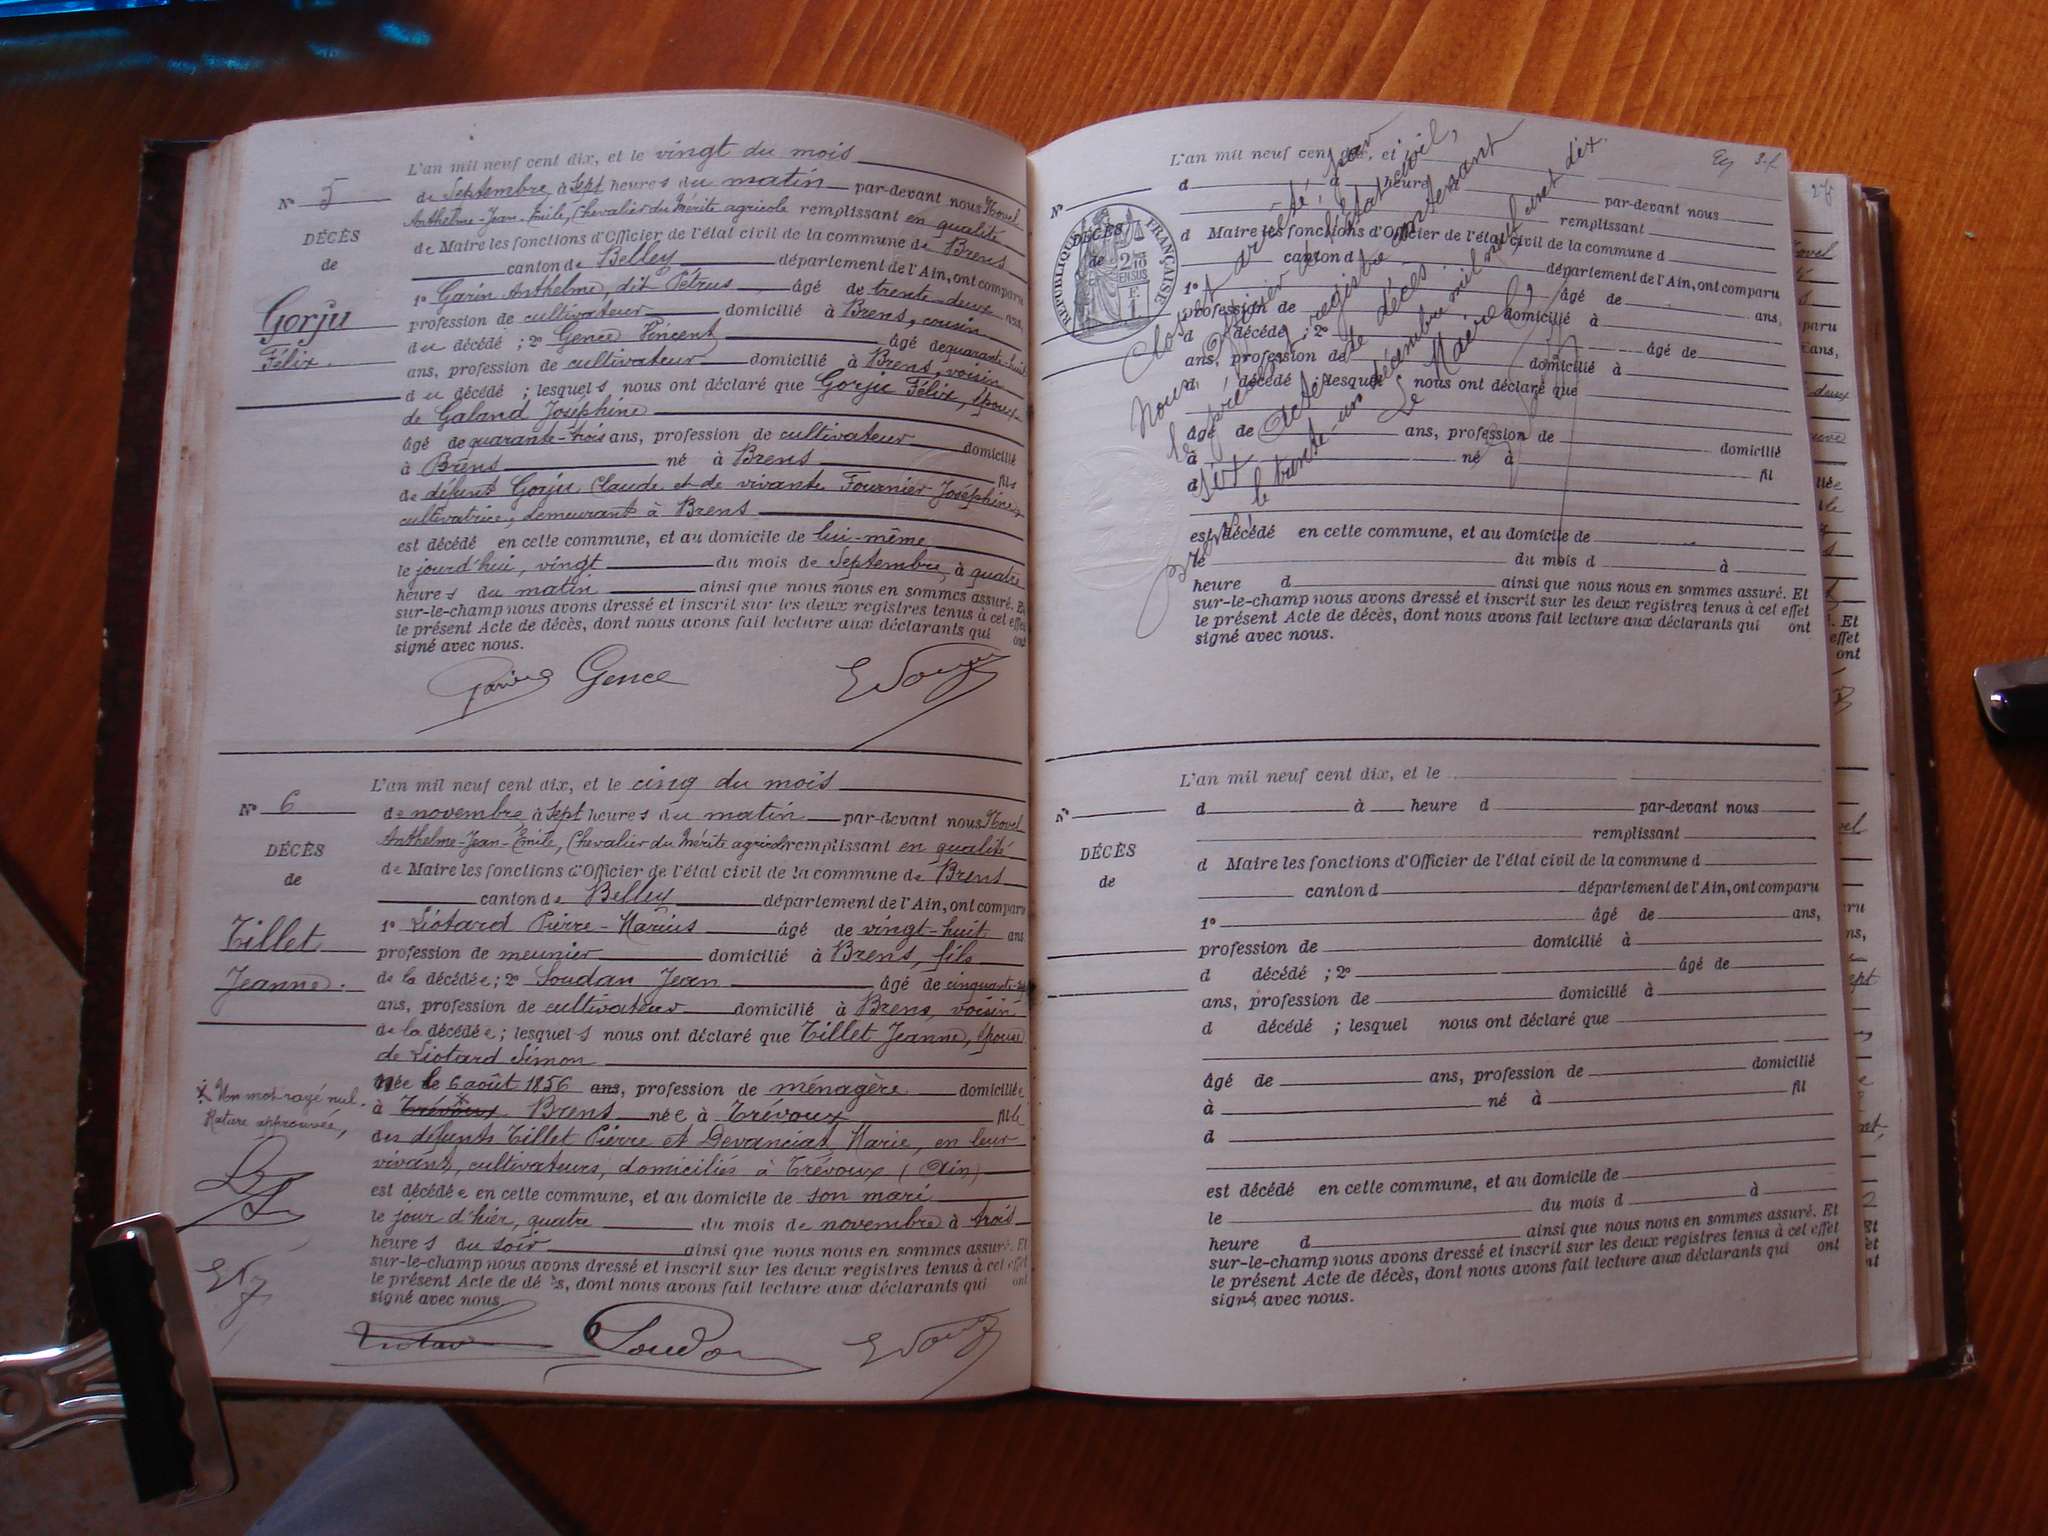 L'an mil neuf cent dix, et le vingt du mois
N° 5
de Septembre à Sept heures du matin par-devant nous Novel
Anthelme-Jean-Emile, Chevalier du Mérite agricole remplissant en qualité
DÉCÈS
de Maire les fonctions d'Officier de l'état civil de la commune de Brens
de
canton de Belley département de l'Ain, ont comparu
1° Garin Anthelme, dit Pétrus âgé de trente-deux ans,
Gorju
profession de cultivateur domicilié à Brens, cousin
du décédé ; 2° Gence Vincent âgé de quarante-huit
Félix.
ans, profession de cultivateur domicilié à Brens, voisin
du décédé ; lesquels nous ont déclaré que Gorju Félix, époux
de Galand Joséphine
âgé de quarante-trois ans, profession de cultivateur domicilié
à Brens né à Brens fils
de défunt Gorju Claude et de vivante Fournier Joséphine,
cultivatrice, demeurant à Brens
est décédé en cette commune, et au domicile de lui-même
le jourd'hui, vingt du mois de Septembre à quatre
heures du matin ainsi que nous nous en sommes assuré. Et
sur-le-champ nous avons dressé et inscrit sur les deux registres tenus à cet effet
le présent Acte de décès, dont nous avons fait lecture aux déclarants qui ont
signé avec nous.
Garin Gence
L'an mil neuf cent dix, et le cinq du mois
N° 6
de novembre à Sept heures du matin par-devant nous Novel
Anthelme-Jean-Emile, Chevalier du Mérite agricole remplissant en qualité
DÉCÈS
de Maire les fonctions d'Officier de l'état civil de la commune de Brens
de
canton de Belley département de l'Ain, ont comparu
Tillet
1° Liotard Pierre-Marius âgé de vingt-huit ans
profession de meunier domicilié à Brens, fils
Jeanne.
de la décédée ; 2° Soudan Jean âgé de cinquante-
ans, profession de cultivateur domicilié à Brens, voisin
de la décédée ; lesquels nous ont déclaré que Tillet Jeanne, épouse
de Liotard Simon
née le 6 août 1856 ans, profession de ménagère domiciliée
× Un mot rayé nul.
à Trévoux × Brens née à Trévoux fille
Rature approuvée,
des défunts Tillet Pierre et Devanciat Marie, en leur
vivant, cultivateurs, domiciliés à Trévoux (Ain)
est décédée en cette commune, et au domicile de son mari
le jour d'hier, quatre du mois de novembre à trois
heures du soir ainsi que nous nous en sommes assuré. Et
sur-le-champ nous avons dressé et inscrit sur les deux registres tenus à cet effet
le présent Acte de décès, dont nous avons fait lecture aux déclarants qui ont
signé avec nous.
Liotard Soudan
L'an mil neuf cent dix, et
d à heure
N° par-devant nous
remplissant
DÉCÈS
d Maire les fonctions d'Officier de l'état civil de la commune d
de
canton d département de l'Ain, ont comparu
RÉPUBLIQUE FRANÇAISE
2/10 EN SUS
1° âgé de ans,
profession de domicilié à
d décédé ; 2° âgé de
ans, profession de domicilié à
d décédé ; lesquel nous ont déclaré que
âgé de ans, profession de domicilié
à né à fil
d
est décédé en cette commune, et au domicile de
le du mois d à
heure d ainsi que nous nous en sommes assuré. Et
sur-le-champ nous avons dressé et inscrit sur les deux registres tenus à cet effet
le présent Acte de décès, dont nous avons fait lecture aux déclarants qui ont
signé avec nous.
Clos et arrêté, par
Nous, Officier de l'état civil,
le présent registre contenant
Six actes de décès.
le trente-un décembre mil neuf cent dix.
Le Maire,
L'an mil neuf cent dix, et le
N°
d à heure d par-devant nous
remplissant
DÉCÈS
d Maire les fonctions d'Officier de l'état civil de la commune d
de
canton d département de l'Ain, ont comparu
1° âgé de ans,
profession de domicilié à
d décédé ; 2° âgé de
ans, profession de domicilié à
d décédé ; lesquel nous ont déclaré que
âgé de ans, profession de domicilié
à né à fil
d
est décédé en cette commune, et au domicile de
le du mois d à
heure d ainsi que nous nous en sommes assuré. Et
sur-le-champ nous avons dressé et inscrit sur les deux registres tenus à cet effet
le présent Acte de décès, dont nous avons fait lecture aux déclarants qui ont
signé avec nous.